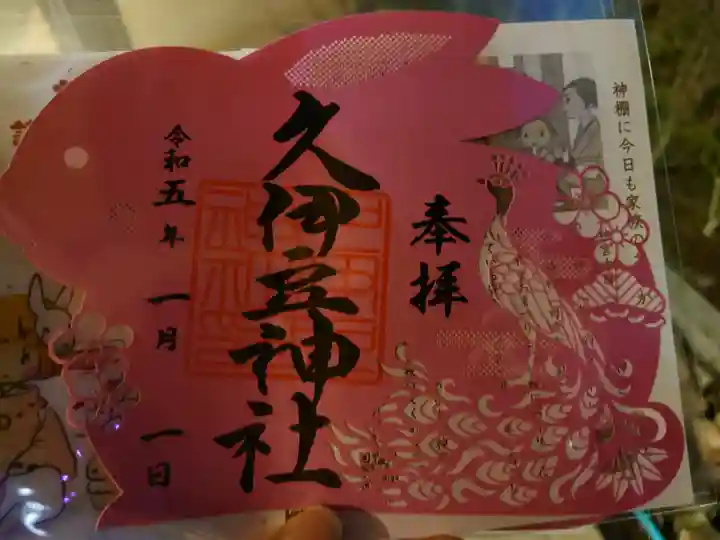 神棚に今日も家族の
奉拝
久伊豆神社
令和五年一月一日